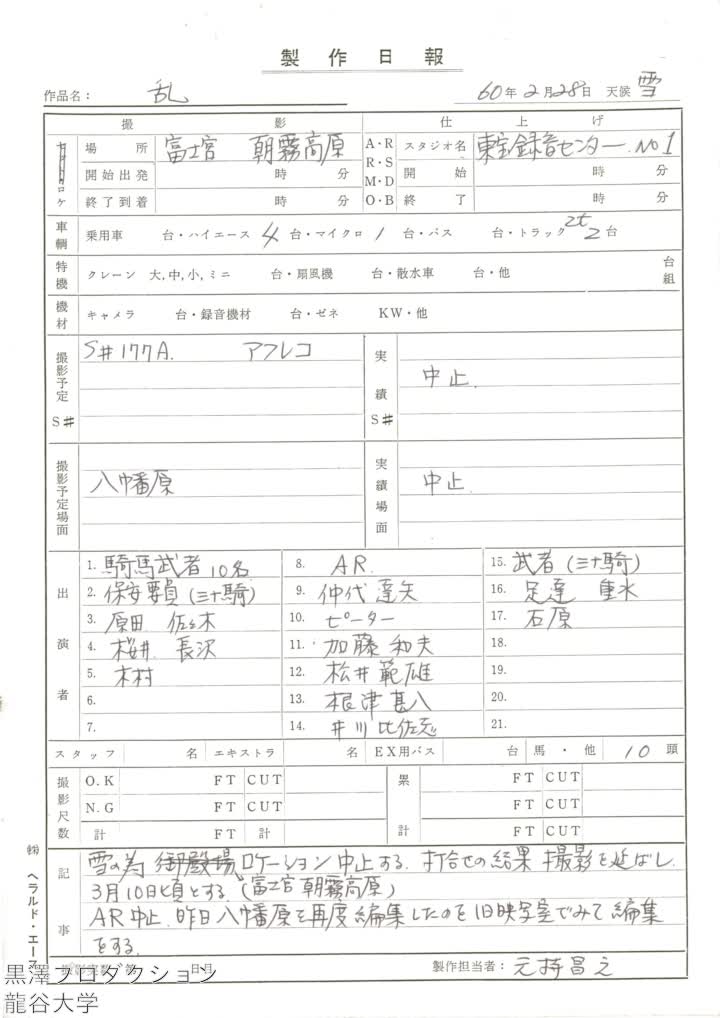 製作日報
作品名： 乱 60年2月28日 天候 雪
撮影 仕上げ
ロケ 場所 富士宮 朝霧高原 A・R R・S M・D O・B スタジオ名 東宝録音センター No1
開始出発 時 分 開始 時 分
終了到着 時 分 終了 時 分
車輌 乗用車 台・ハイエース 4 台・マイクロ 1 台・バス 台・トラック 2t 2 台
特機 クレーン 大,中,小,ミニ 台・扇風機 台・散水車 台・他 台組
機材 キャメラ 台・録音機材 台・ゼネ KW・他
撮影予定 S# S#177A. アフレコ 実績 S# 中止.
撮影予定場面 八幡原 実績場面 中止
出演者
1. 騎馬武者 10名 8. AR. 15. 武者 (三十騎)
2. 保安要員 (三十騎) 9. 仲代達矢 16. 足達 垂水
3. 原田 佐々木 10. ピーター 17. 石原
4. 桜井 長沢 11. 加藤和夫 18.
5. 木村 12. 松井範雄 19.
6. 13. 根津甚八 20.
7. 14. 井川比佐志 21.
スタッフ 名 エキストラ 名 EX用バス 台 馬・他 10 頭
撮影尺数 O.K FT CUT 累計 FT CUT
N.G FT CUT FT CUT
計 FT 計 FT CUT
記事 雪の為 御殿場 ロケーション中止する. 打合せの結果 撮影を延ばし.
3月10日頃とする. (富士宮 朝霧高原)
AR中止. 昨日八幡原を再度編集したのを旧映写室でみて編集
をする.
撮影実数 第 日目 製作担当者： 元持昌之
㈱ ヘラルド・エース
黒澤プロダクション
龍谷大学